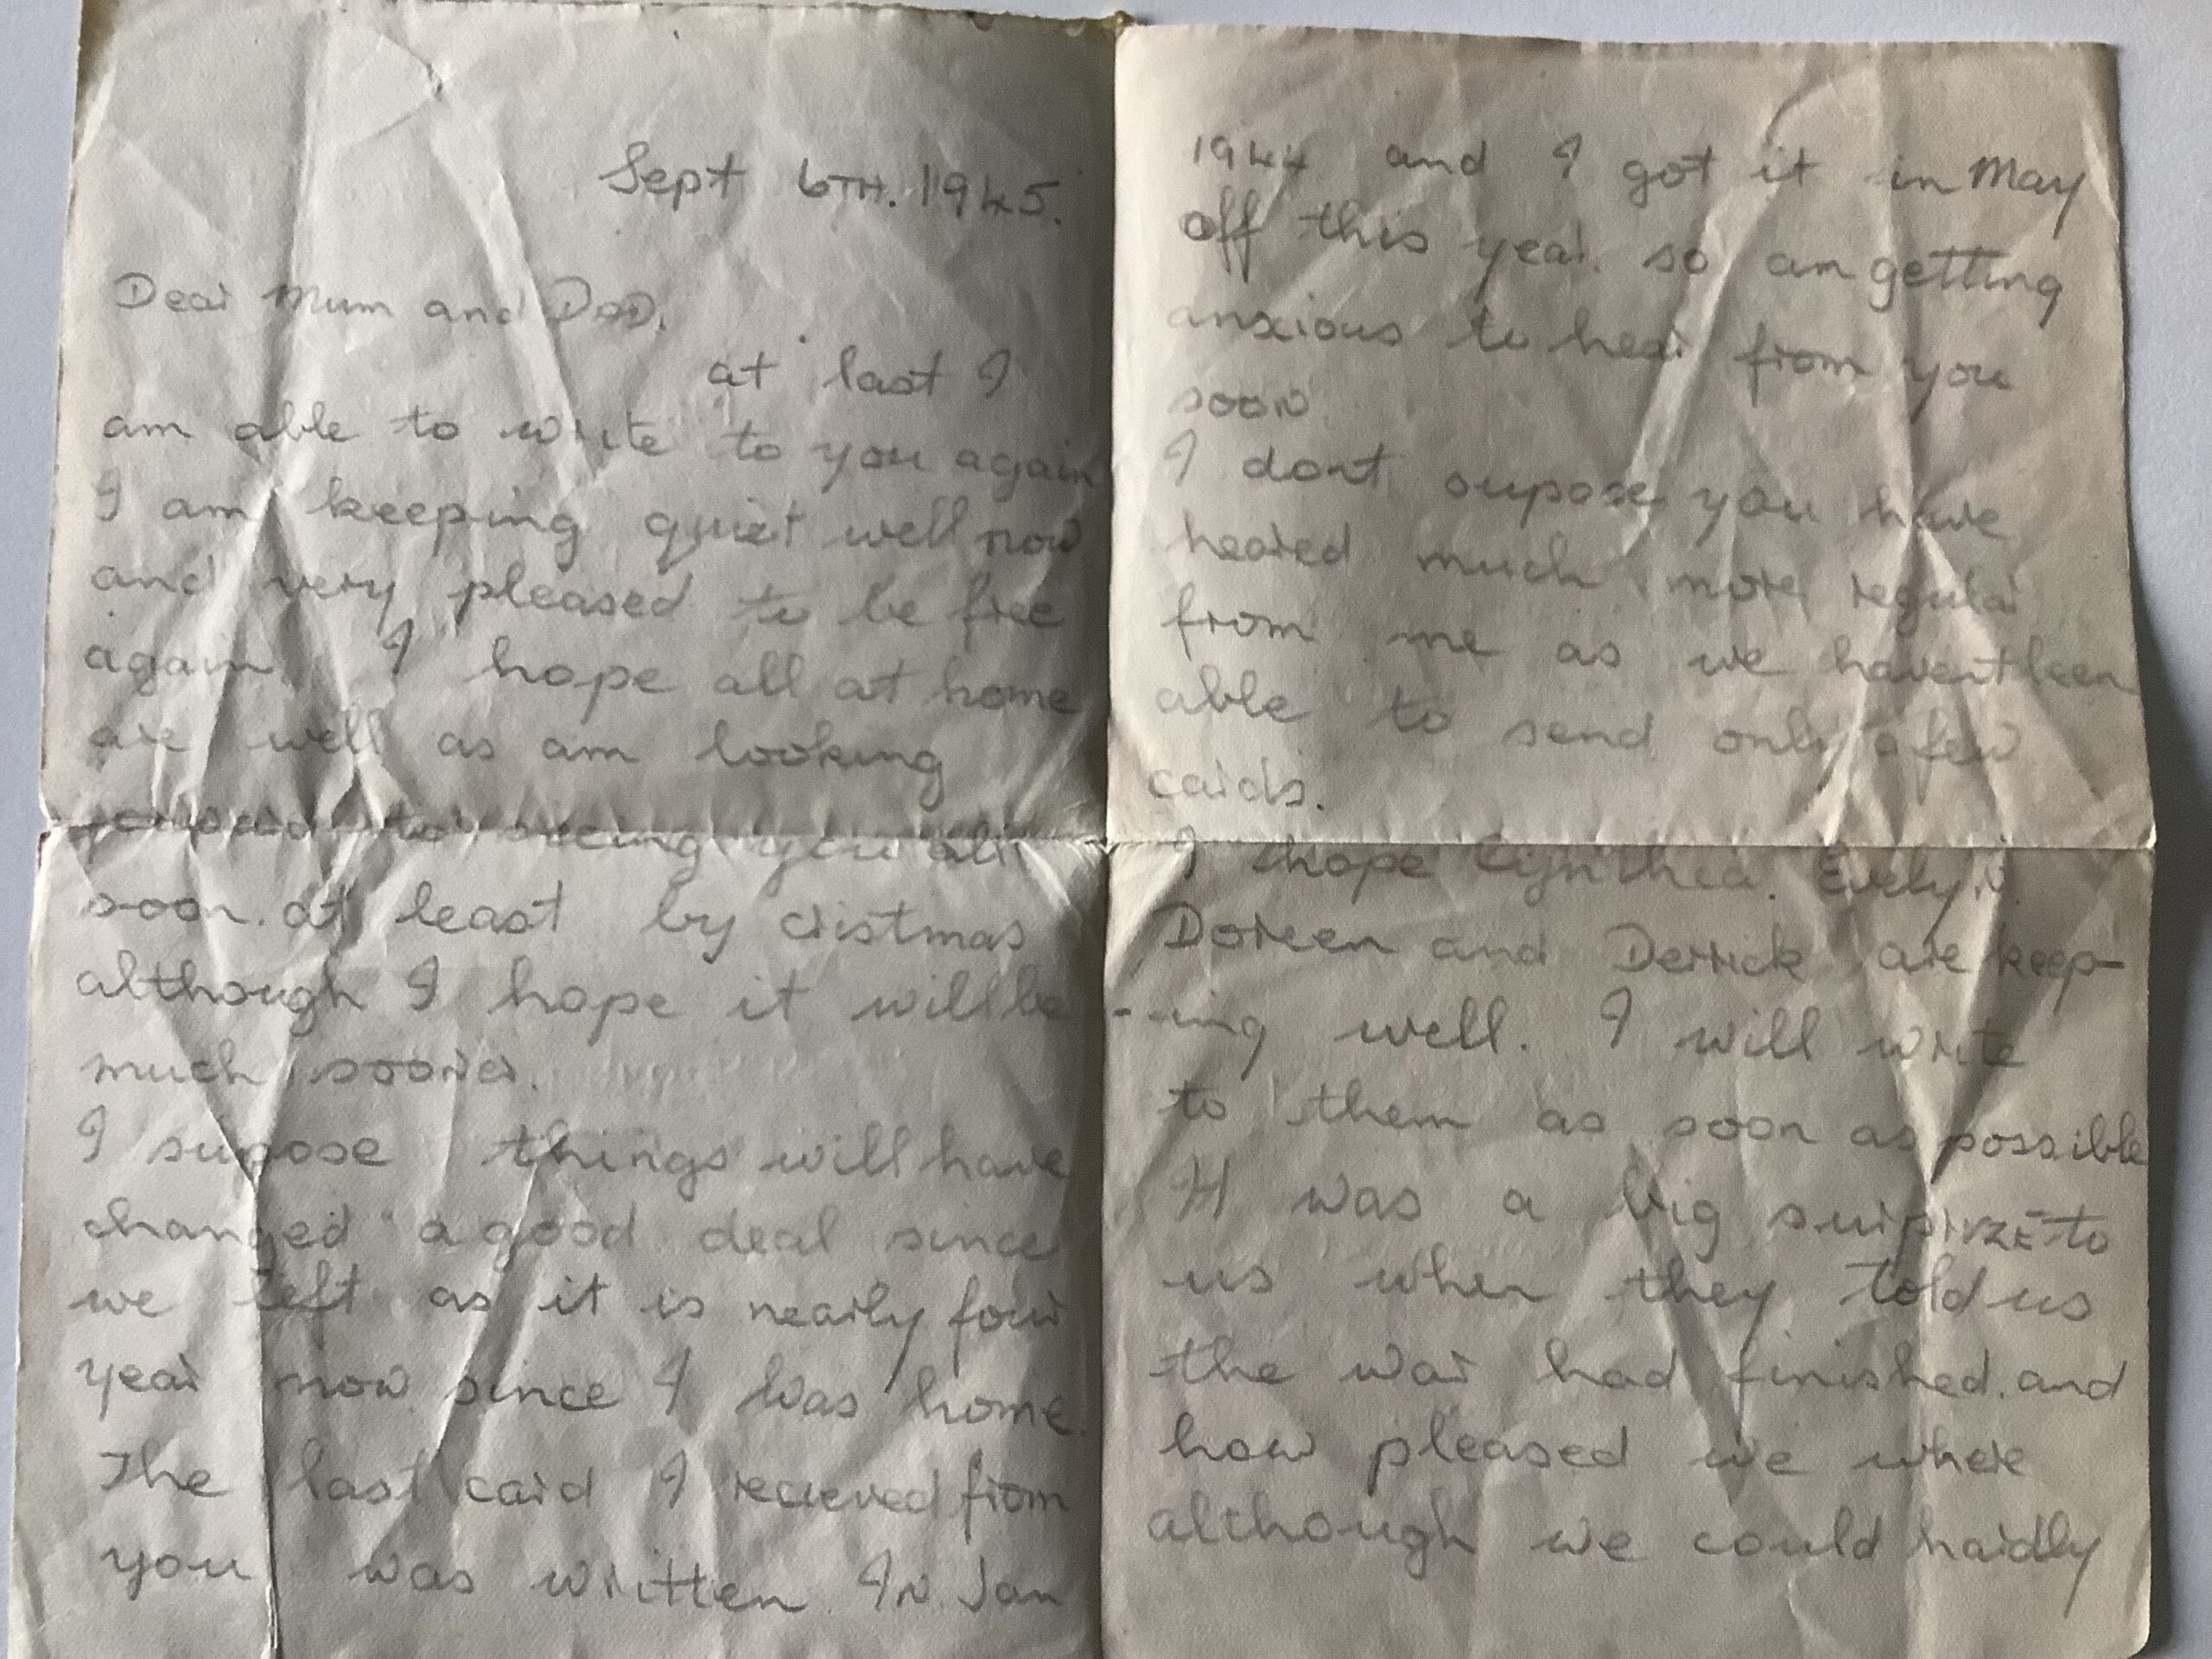 Sept 6TH. 1945.
Dear Mum and Dad.
at last I
am able to write to you again
I am keeping quiet well now
and very pleased to be free
again. I hope all at home
are well as am looking
forward to seeing you all
soon. at least by cristmas
although I hope it will be
much sooner.
I supose things will have
changed a good deal since
we left as it is nearly four
year now since I was home.
The last card I recieved from
you was written In Jan
1944 and I got it in May
off this year. so am getting
anxious to hear from you
soon
I dont supose you have
heared much more regular
from me as we havent been
able to send only a few
cards.
I hope Cynthea. Evelyn.
Doreen and Derrick are keep-
-ing well. I will write
to them as soon as possible
It was a big surprize to
us when they told us
the war had finished. and
how pleased we where
although we could hardly